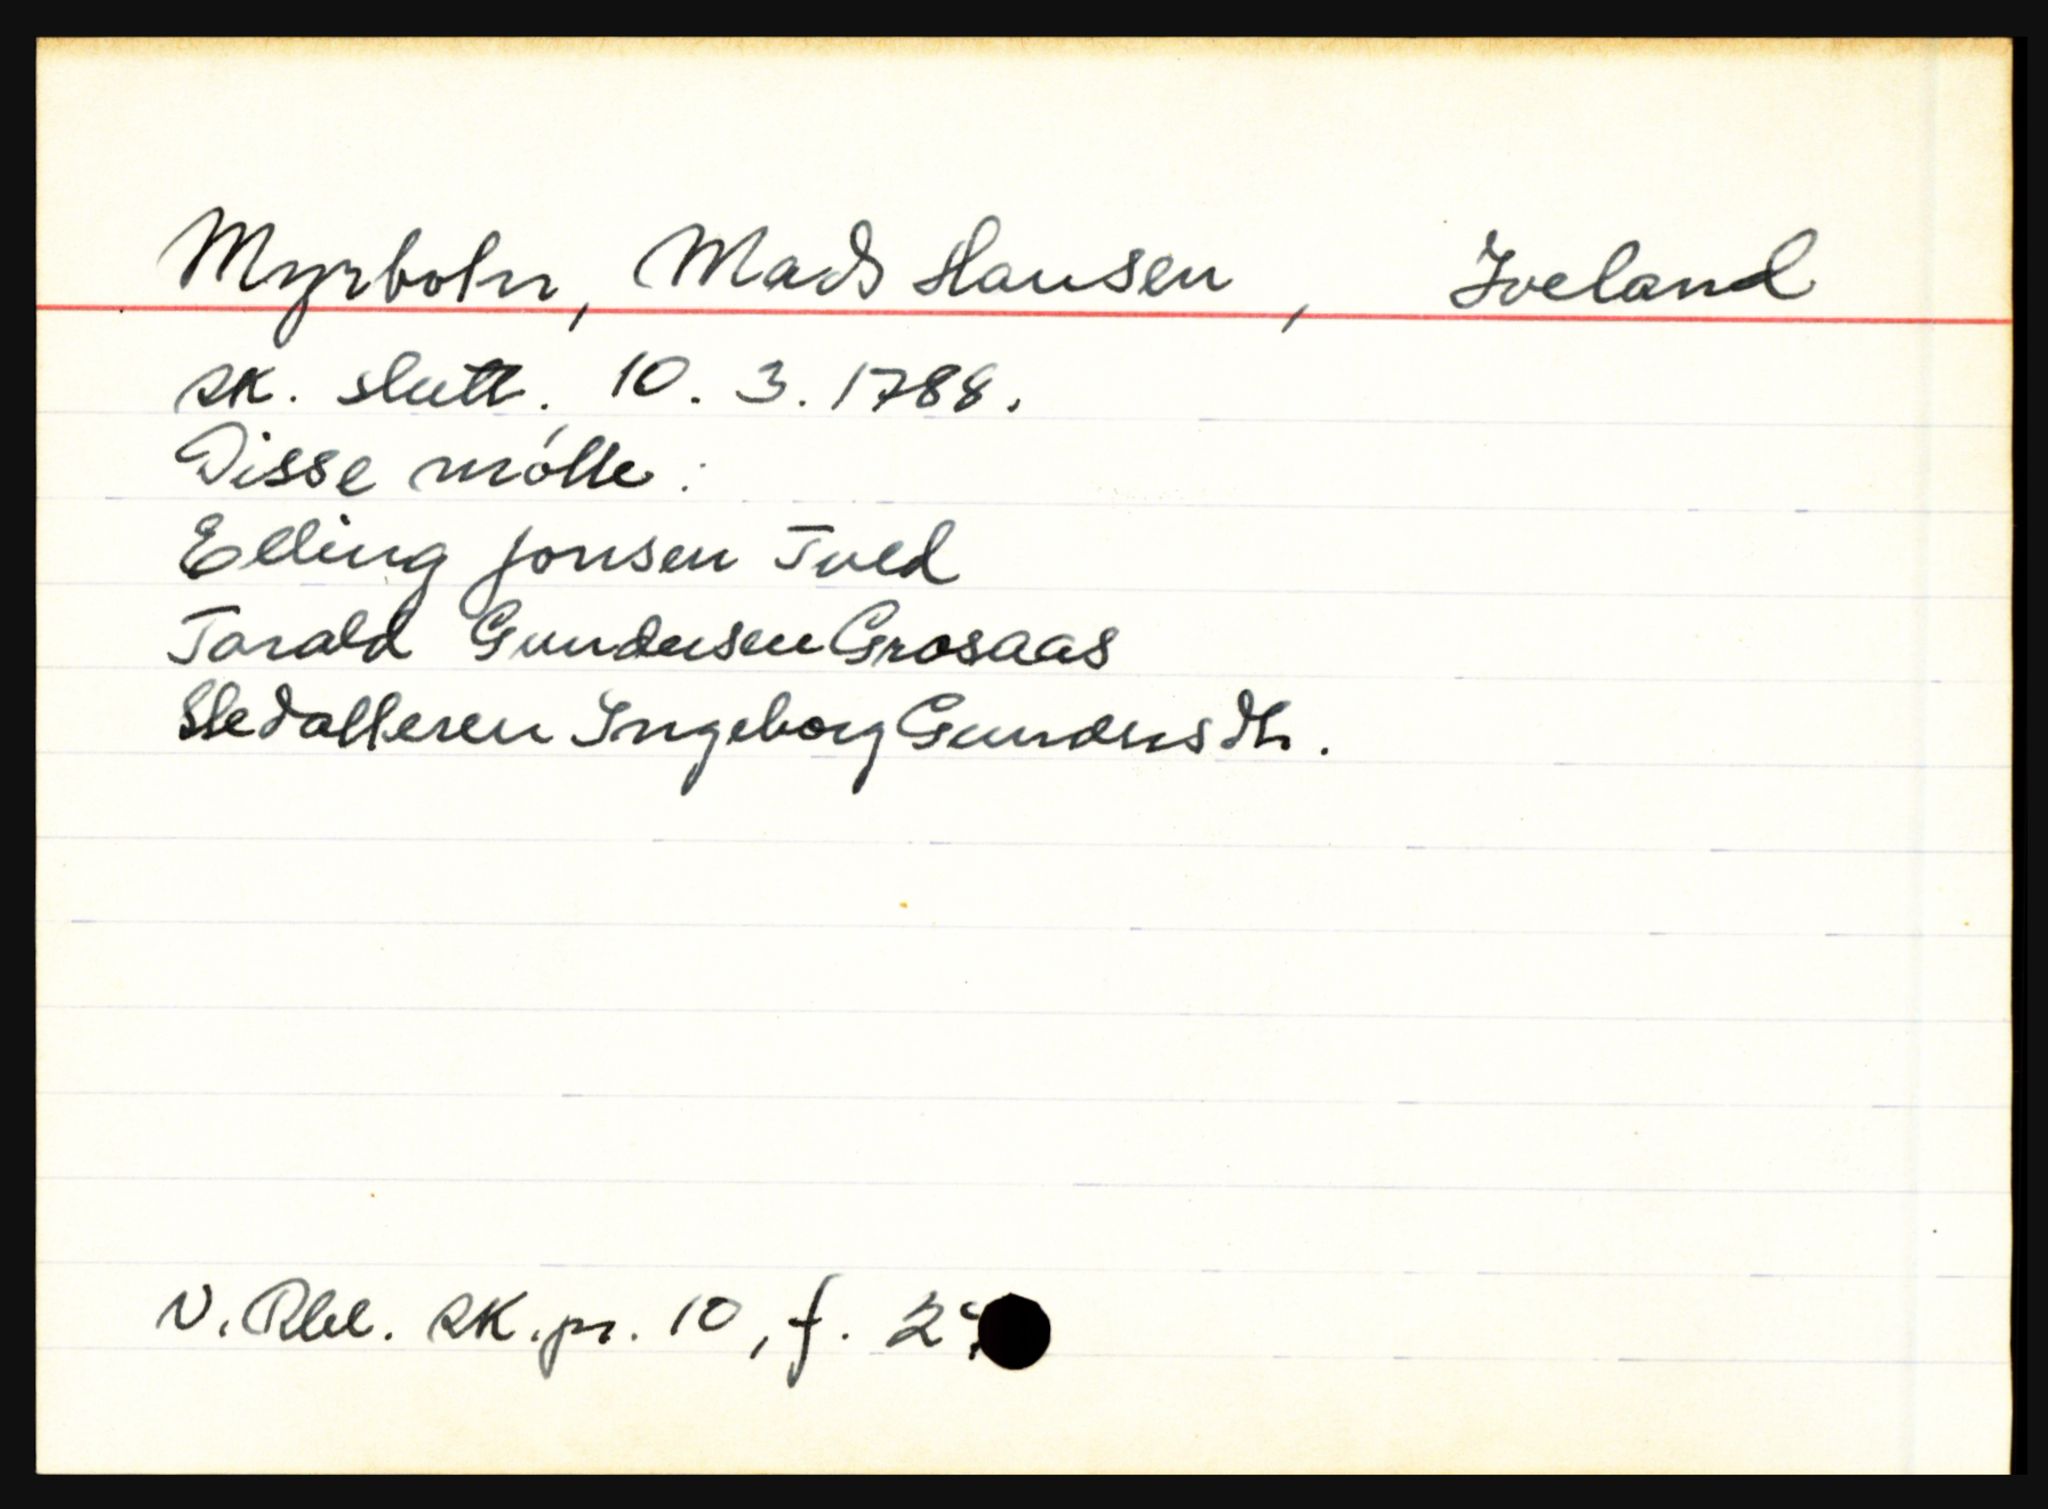 Myrbohn, Mads Hansen, Iveland
sk. slutt. 10. 3. 1788.
Disse mótte:
Elling Jonsen Tved
Tarald Gundersen Grosaas
Stedatteren Ingeborg Gundersdtr.
N. Rbl. sk.pr. 10, f. 2